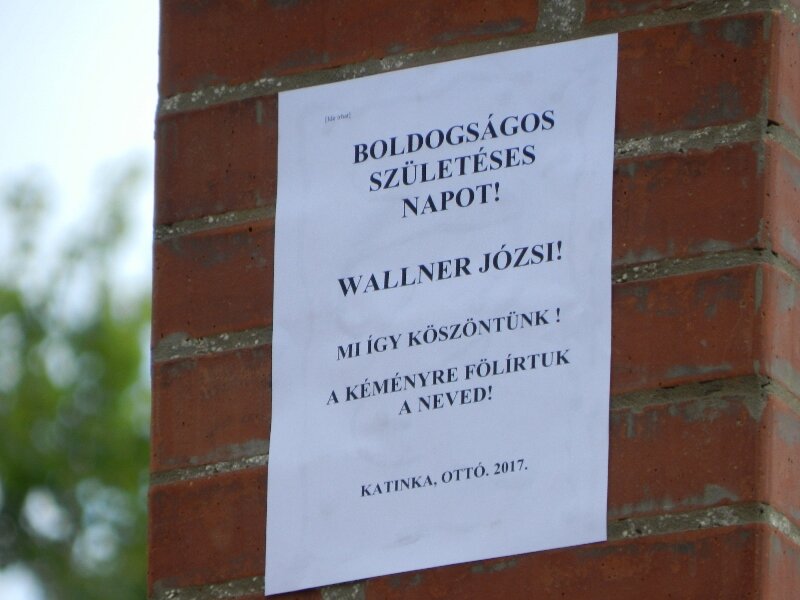 BOLDOGSÁGOS
SZÜLETÉSES
NAPOT!
WALLNER JÓZSI!
MI ÍGY KÖSZÖNTÜNK !
A KÉMÉNYRE FÖLÍRTUK
A NEVED!
KATINKA, OTTÓ. 2017.